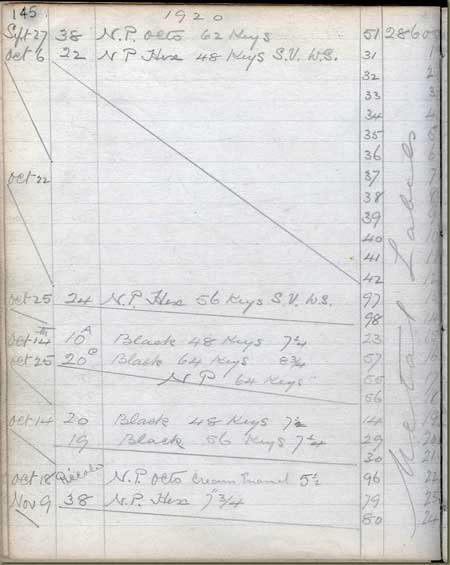 145 1920
Sept 27 38 N.P. Octo 62 Keys 51 28600
Oct 6 22 N P Hex 48 Keys S.V. W.S. 31 1
32 2
33 3
34 4
35 5
36 6
Oct 22 37 7
38 8
39 9
40 10
41 11
42 12
Oct 25 24 N.P. Hex 56 Keys S.V. W.S. 97 13
98 14
Oct 14th 10A Black 48 Keys 7¼ 23 15
Oct 25 20 Black 64 Keys 8¾ 57 16
N P 64 Keys 55 17
56 18
Oct 14 20 Black 48 Keys 7½ 14 19
19 Black 56 Keys 7¼ 29 20
30 21
Oct 18 Piccolo N.P. Octo Cream Enamel 5½ 96 22
Nov 9 38 N.P. Hex 7¾ 79 23
80 24
Metal Labels